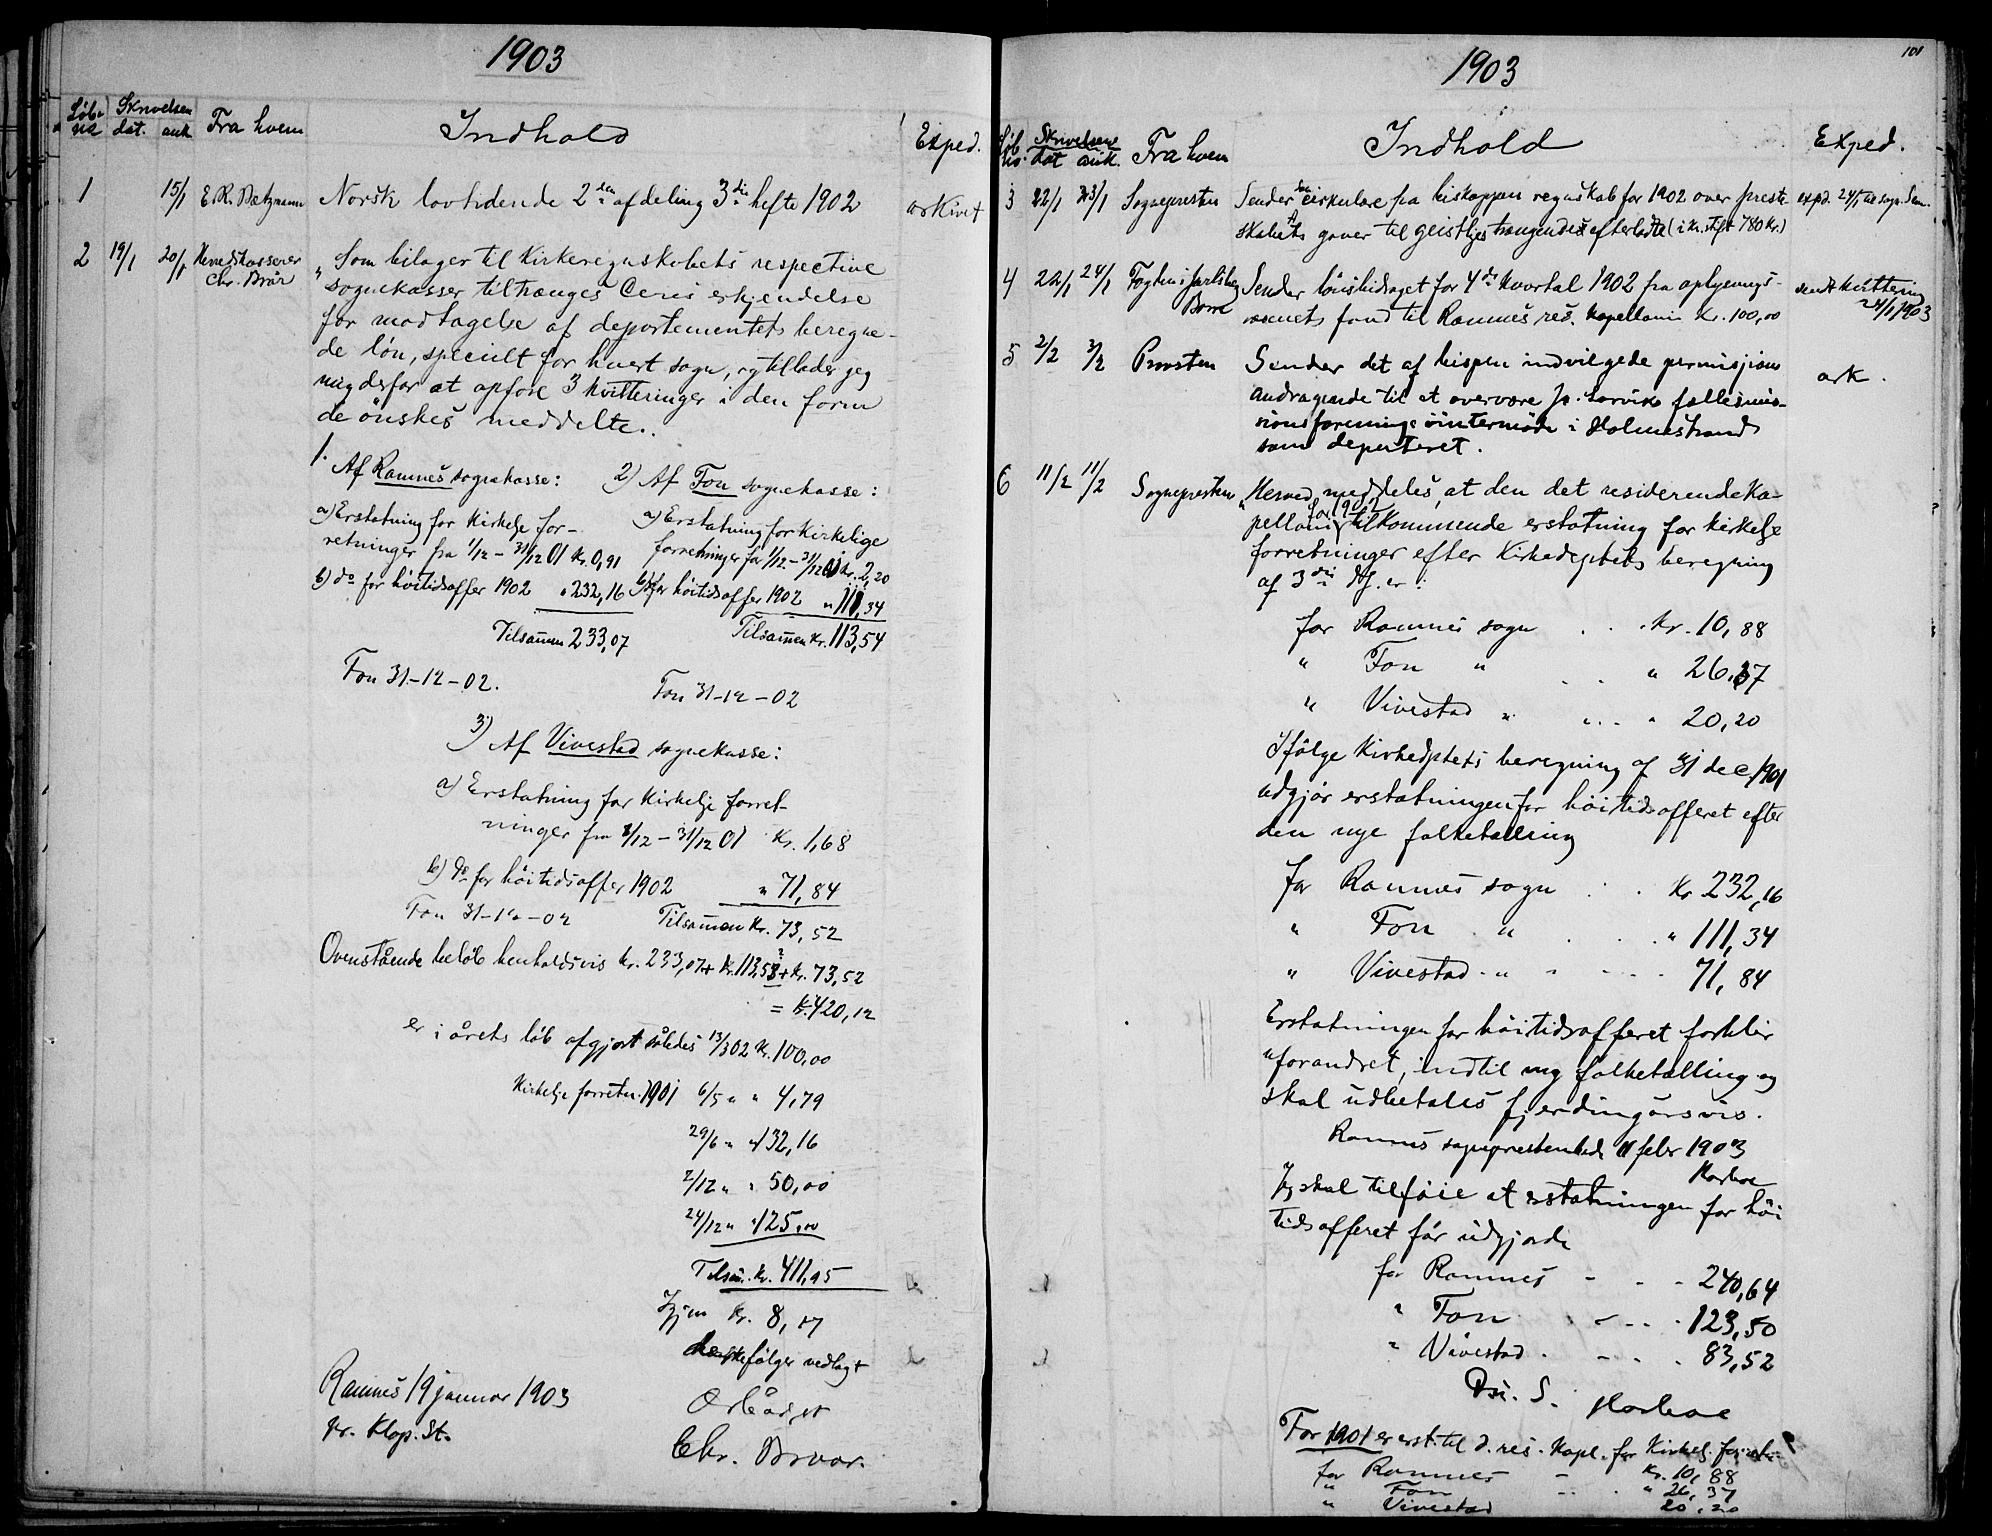 1903
Löb. no
Skrivelsen
dat. ank.
Fra hvem
Indhold
Exped.
1 15/1 E. R. Bætzmann Norsk lovtidende 2den afdeling 3die hefte 1902 arkivet
2 19/1 20/1 Herredskasserer Chr. Brår
"Som bilager til kirkeregnskabets respective
sognekasser tiltrænges Deres erkjendelse
for modtagelse af departementets beregne-
de lön, specielt for hvert sogn, og tillader jeg
mig derfor at opföre 3 kvitteringer i den form
de önskes meddelte.
1. Af Ramnes sognekasse:
a) Erstatning for kirkelje for-
retninger fra 1/12 - 31/12 01 kr. 0,91
b) do for höitidsoffer 1902 " 232,16
Tilsammen 233,07
Fon 31-12-02.
2) Af Fon sognekasse:
a) Erstatning for kirkelige
forretninger for 1/12 - 31/12 01 kr. 2,20
b) do for höitidsoffer 1902 " 111,34
Tilsammen kr. 113,54
Fon 31-12-02
3) Af Vivestad sognekasse:
a) Erstatning for kirkelje forret-
ninger fra 1/12 - 31/12 01 kr. 1,68
b) do for höitidsoffer 1902 " 71,84
Fon 31-12-02 Tilsammen kr. 73,52
Ovenstående belöb henholdsvis kr. 233,07 + kr. 113,53 + kr. 73,52
= kr. 420,12
er i årets löb afgjort således 13/3 02 kr. 100,00
Kirkelje forretn. 1901 6/5 " " 4,79
29/6 " " 132,16
2/12 " " 50,00
24/12 " " 125,00
Tilsam. kr. 411,95
Igjen kr. 8,17
følger vedlagt
Ramnes 19 januar 1903
Chr. Brår.
1903
101
Löb no.
Skrivelsens
dat ank.
Fra hvem
Indhold
Exped.
3 22/1 23/1 Sognepresten
Sender cirkulære fra biskoppen regnskab for 1902 over preste-
skabets gaver til geistliges trængende efterladte (i Kr. stift 780 kr.)
exp. 24/1 til sogn. Sem.
4 22/1 24/1 Fogden i Jarlsberg Borre
Sender lönsbidraget for 4de kvartal 1902 fra oplysnings-
væsenets fond til Ramnes res. kapellani kr. 100,00
sendt kvittering
24/1 1903
5 2/2 3/2 Provsten
Sender det af bispen indvilgede permisjons
andragende til at overvære Jr. Larviks fællesmis-
sionsforenings vintermöde i Holmestrand
som deputeret.
ark.
6 11/2 11/2 Sognepresten
"Herved meddeles, at den det residerende ka-
pellani for 1902 tilkommende erstatning for kirkelje
forretninger efter Kirkedeptets beregning
af 3die df. er:
for Ramnes sogn . . kr. 10,88
" Fon " . . " 26,37
" Vivestad " " . . " 20,20
Ifölge Kirkedptets beregning af 31 dec. 1901
udgjör erstatningen for höitidsofferet efter
den nye folketælling
for Ramnes sogn . . kr 232,16
" Fon " . . " 111,34
" Vivestad " . . 71,84
Erstatningen for höitidsofferet forblir
uforandret, indtil ny folketælling og
skal udbetales fjerdingårsvis.
Ramnes sogneprestembede 11 febr 1903
Harboe
Jeg skal tilföie at erstatningen for höi
tidsofferet för udgjorde
for Ramnes - - - 240,64
" Fon - - - 123,50
" Vivestad - - - 83,52
D. S. Harboe
For 1901 er erst. til d. res. kapl. for kirkel. forretn.
for Ramnes - kr. 10,88
" Fon - " 26,37
" Vivestad 20,20